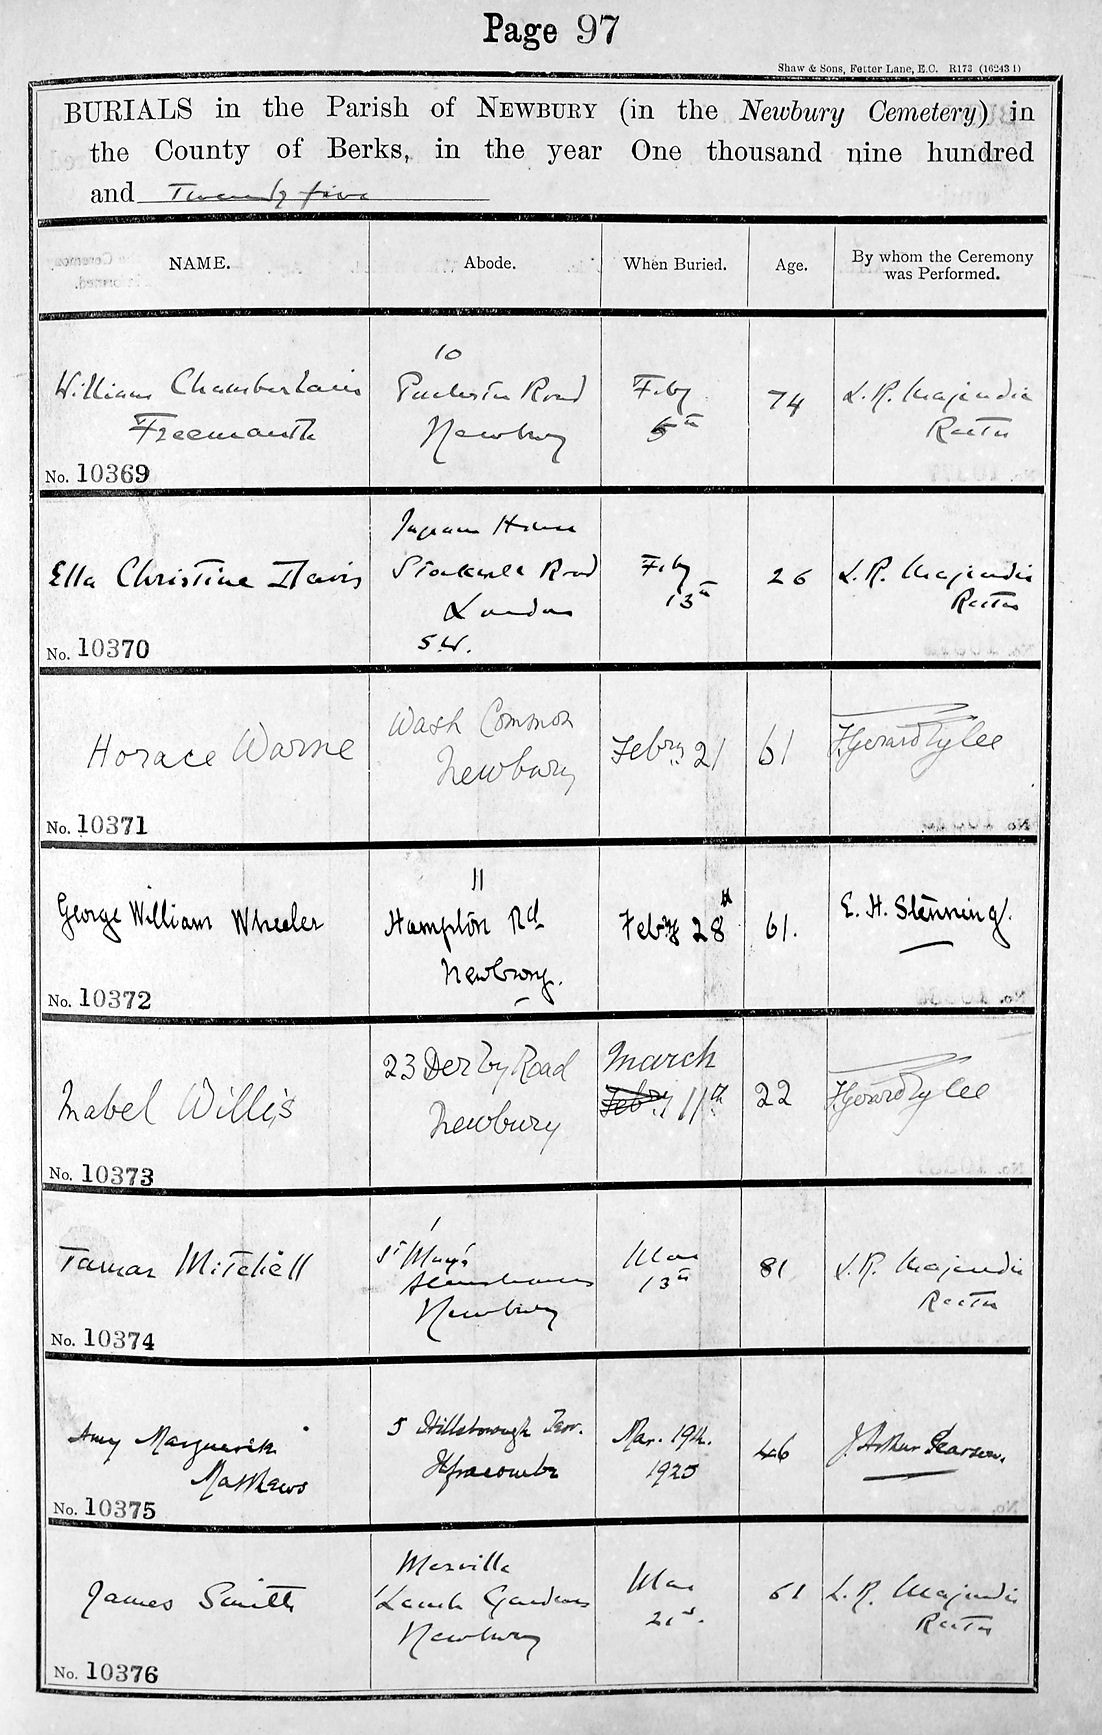 Page 97
Shaw & Sons, Fetter Lane, E.C. R173 (16243 1)
BURIALS in the Parish of NEWBURY (in the Newbury Cemetery) in
the County of Berks, in the year One thousand nine hundred
and Twenty five
NAME.
Abode.
When Buried.
Age.
By whom the Ceremony
was Performed.
William Chamberlain
Freemantle
No. 10369
10
Road
Newbury
Feby
5th
74
L. R. Majendie
Rector
Ella Christine Davis
No. 10370
Ingram House
Stockwell Road
London
S.W.
Feby
13th
26
L. R. Majendie
Rector
Horace Warne
No. 10371
Wash Common
Newbury
Febry 21
61
F Gerard Tylee
George William Wheeler
No. 10372
11
Hampton Rd
Newbury.
Feby 28th
61.
E. H. Stenning.
Mabel Willis
No. 10373
23 Derby Road
Newbury
March
Febry 11th
22
F Gerard Tylee
Tamar Mitchell
No. 10374
1
St Mary's
Almshouses
Newbury
Mar
13th
81
L. R. Majendie
Rector
Amy Marguerite
Matthews
No. 10375
5 Hillsborough Terr.
Ilfracombe
Mar. 19th.
1925
46
J. Arthur Pearson.
James Smith
No. 10376
Merville
Gardens
Newbury
Mar
21st.
61
L. R. Majendie
Rector